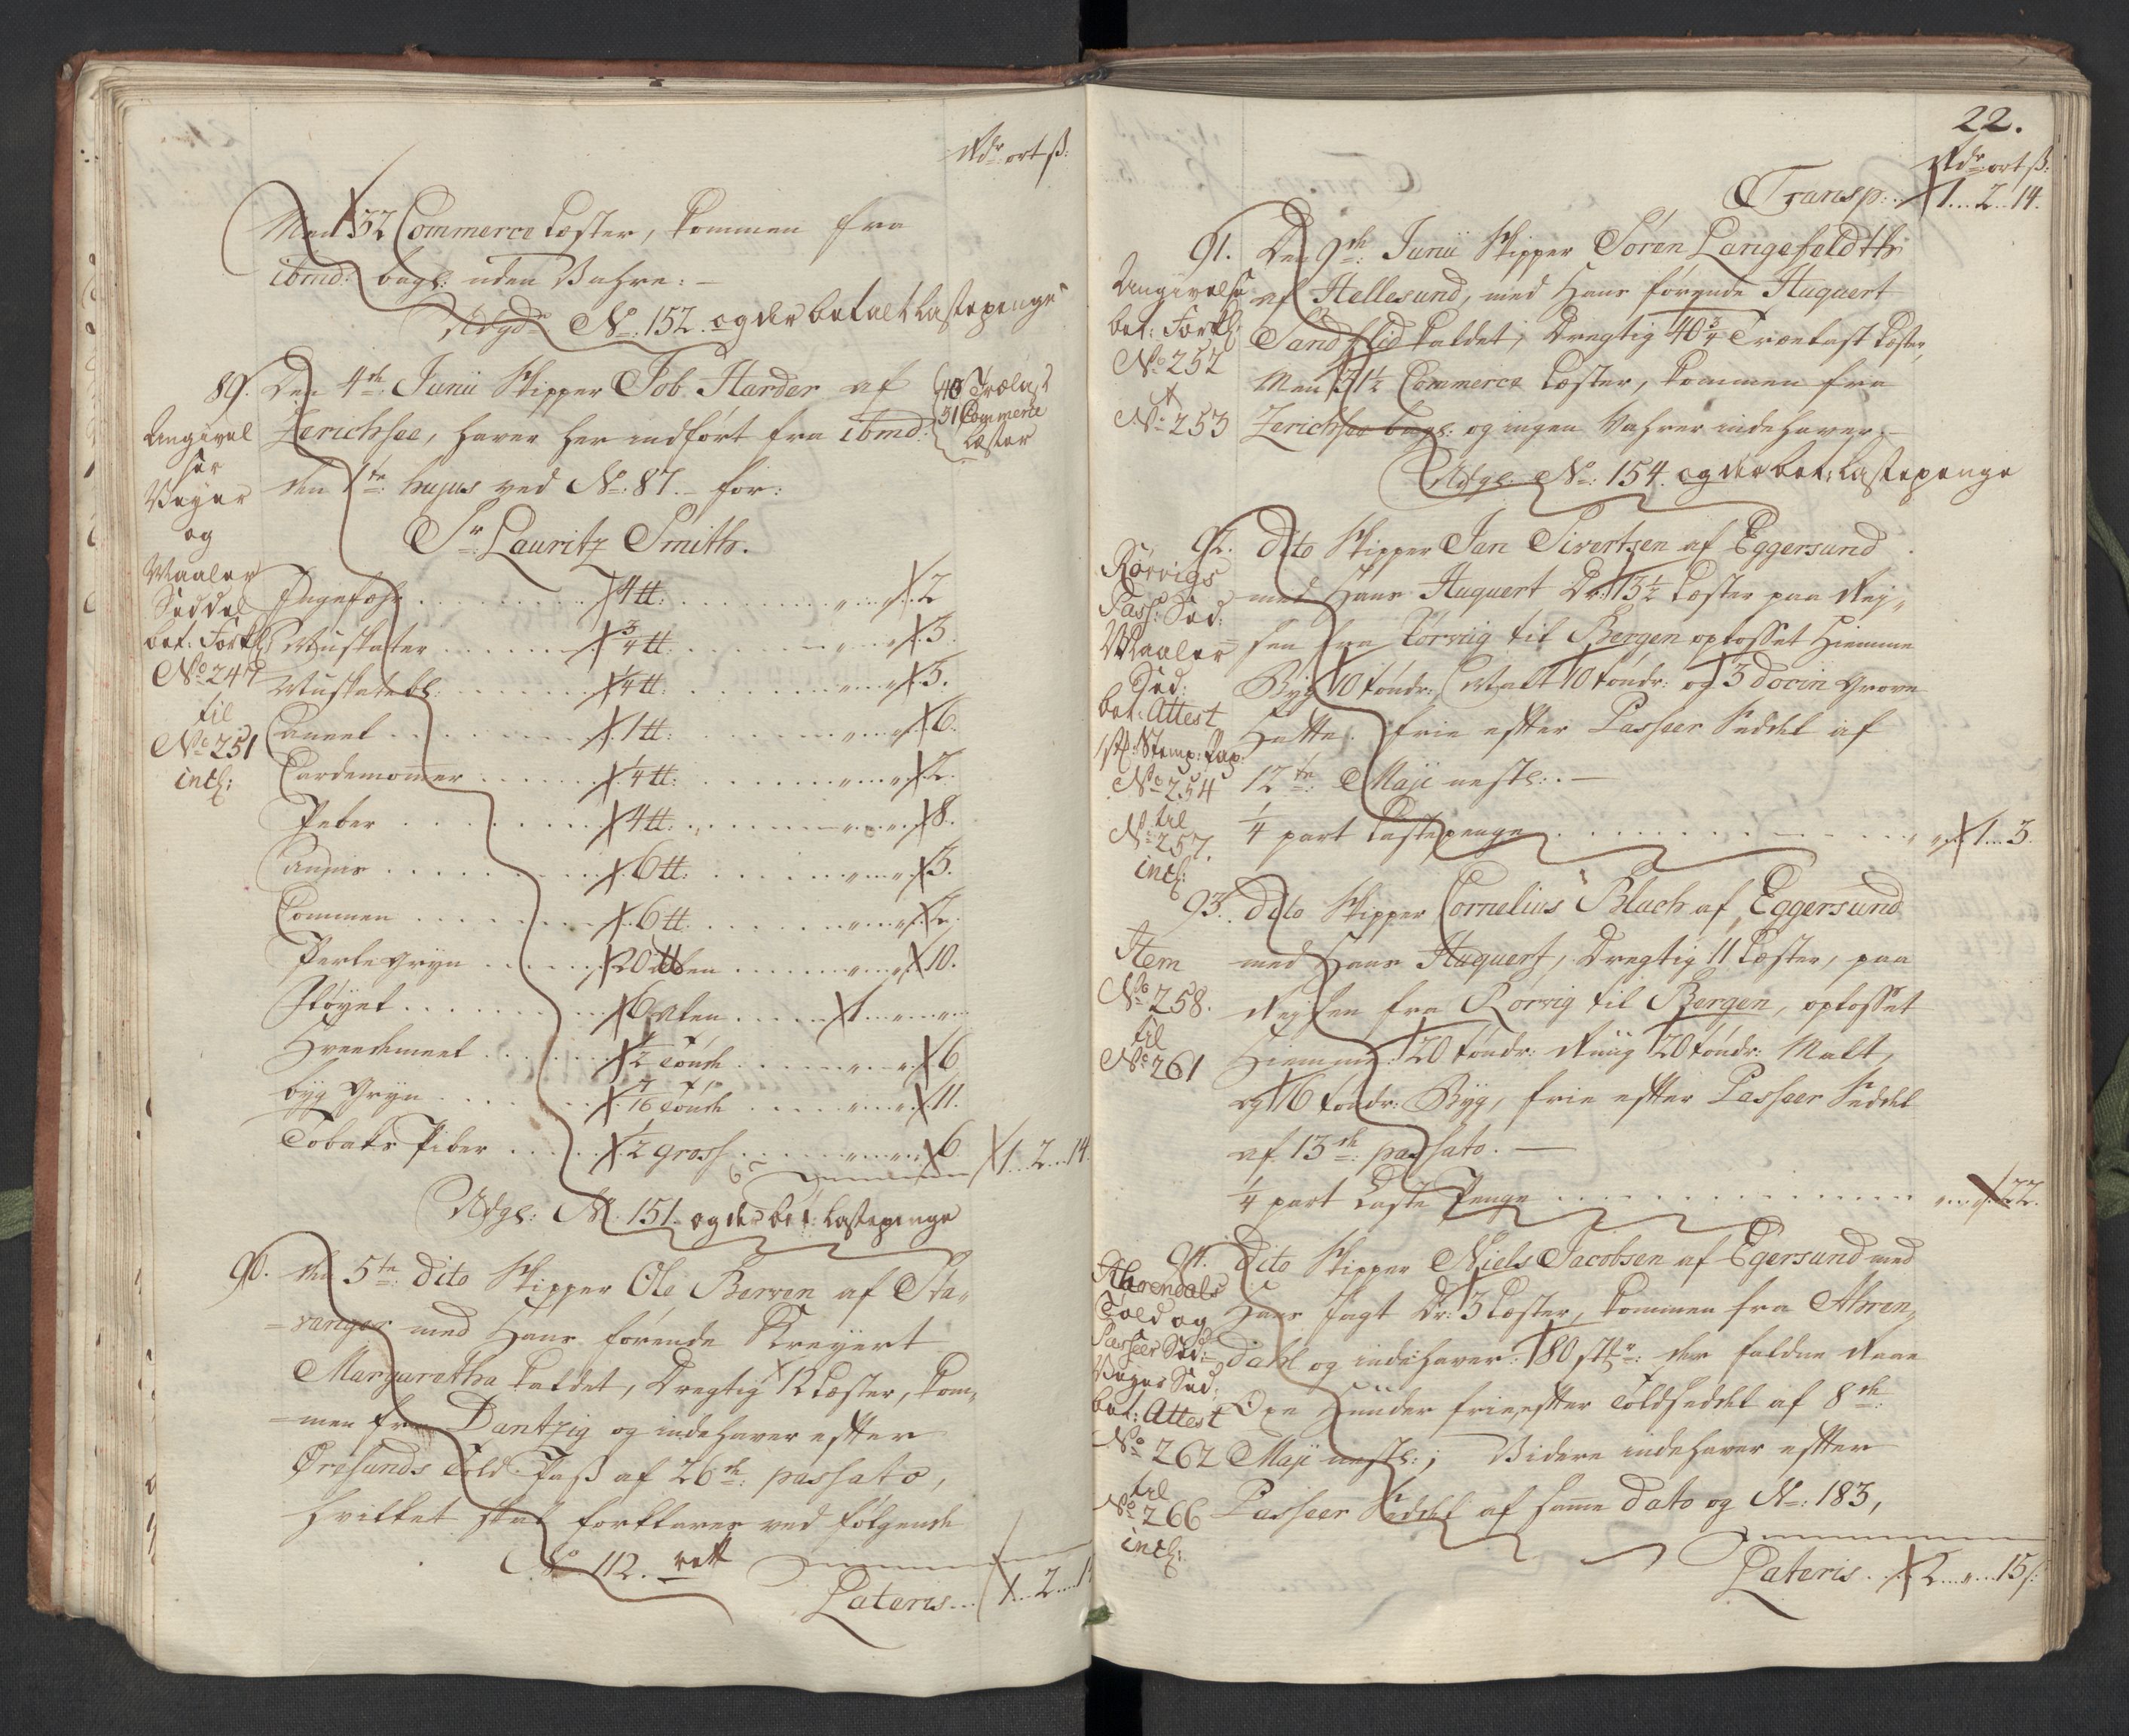 Rdr ort ß:
Men 32 Commerce Læster, kommen fra
ibmd: bagl: uden Vahre: —
Udgd: No: 152. og der betalt Lastepenge
89. Den 4de: Junii Skipper Job Harder af
40 Trælast
31 Commerce
Læster
Zerichsee, haver her indført fra ibmd:
den 1te: hujus ved No: 87. for:
Sr: Lauritz Smith.
Angivel
ser
Veyer
og
Maaler
Seddel
bet: Forkl:
No 247
til
No 251
incl:
Ingefehr . . . 4 tt: . . . 2
Muskater . . . 3/4 tt: . . . 3.
Muskatebl: . . . 1/4 tt: . . . 3.
Caneel . . . 1 tt: . . . 6.
Cardemommer . . . 1/4 tt: . . . 2.
Peber . . . 4 tt: . . . 8.
Candis . . . 6 tt: . . . 3.
Commen . . . 6 tt: . . . 2.
Perle Gryn . . . 20 tt . . . 10.
Fløyel . . . 6 Alen . . . 1 . . .
Hveedemeel . . . 1/2 Tønde . . . 6
byg Gryn . . . 4/16 Tønde . . . 11.
Tobaks Piber . . . 1/2 gross . . . 6 1 . . 2 . . 14.
Udgl: No: 151. og der bet: Lastepenge
90. den 5te: dito Skipper Ole Berven af Sta-
-vanger med hans førende Kreyert
Margaretha kaldet, Drægtig 12 Læster, kom-
-men fra Dantzig og indehaver efter
Øresunds Told-Pass af 26de: passato,
hvilket skal forklares ved følgende
No 112. rett
Lateris . . . 1 . . 2 . . 1
22.
Rdr ort ß:
Transp: . 1 . . 2 . . 14.
91. Den 9de: Junii Skipper Søren Langefeldtb:
af Hellesund, med Hans førende Huquert
Sandflid kaldet, Drægtig 40 3/4 Trælast Læster,
Men 31 1/2 Commerce Læster, kommen fra
Zerichsee bagl: og ingen Vahrer indehaver. —
Udgl: No: 154. og der bet: Lastepenge
Angivelse
bet: Forkl:
No 252
No 253
92. dito Skipper Jan Sivertsen af Eggersund
med Hans Huquert Dr: 13 1/2 Læster paa Rey-
sen fra Rørviig til Bergen oplosset Hiemme
Byg 10 tøndr: Malt 10 tøndr: og 3 docin grove
Hatte, frie efter Passeer Seddel af
12te: Maji nestl: . —
1/4 part Lastepenge . . . 1 . . 3.
Rørvigs
Pass: Sed:
Maaler
Sed:
bet: Attest
Stemp: Pap:
No 254
til
No 257.
incl:
93. dito Skipper Cornelius Blach af Eggersund
med Hans Huquert, Drægtig 11 Læster, paa
Reysen fra Rørvig til Bergen, oplosset
Hiemme: 20 tøndr: Ruug 20 tøndr: Malt,
og 16 tøndr: Byg, frie efter Passeer Seddel
af 13de: passato. —
1/4 part Laste Penge . . . 22.
Item
No 258.
til
No 261
94. dito Skipper Niels Jacobsen af Egersund med
Hans Jagt Dr: 3 Læster, kommen fra Ahren-
dahl og indehaver: 180
Oxe Huuder frie, efter Toldseddel af 8de:
Maji nestl:; Videre indehaver efter
Passeer Seddel af samme dato og No: 183,
Ahrendals
Told og
Passeer Sed:
Veyer Sed:
bet: Attest
No 262
til
No 266
incl:
Lateris . . 2 . . . 15 ß: